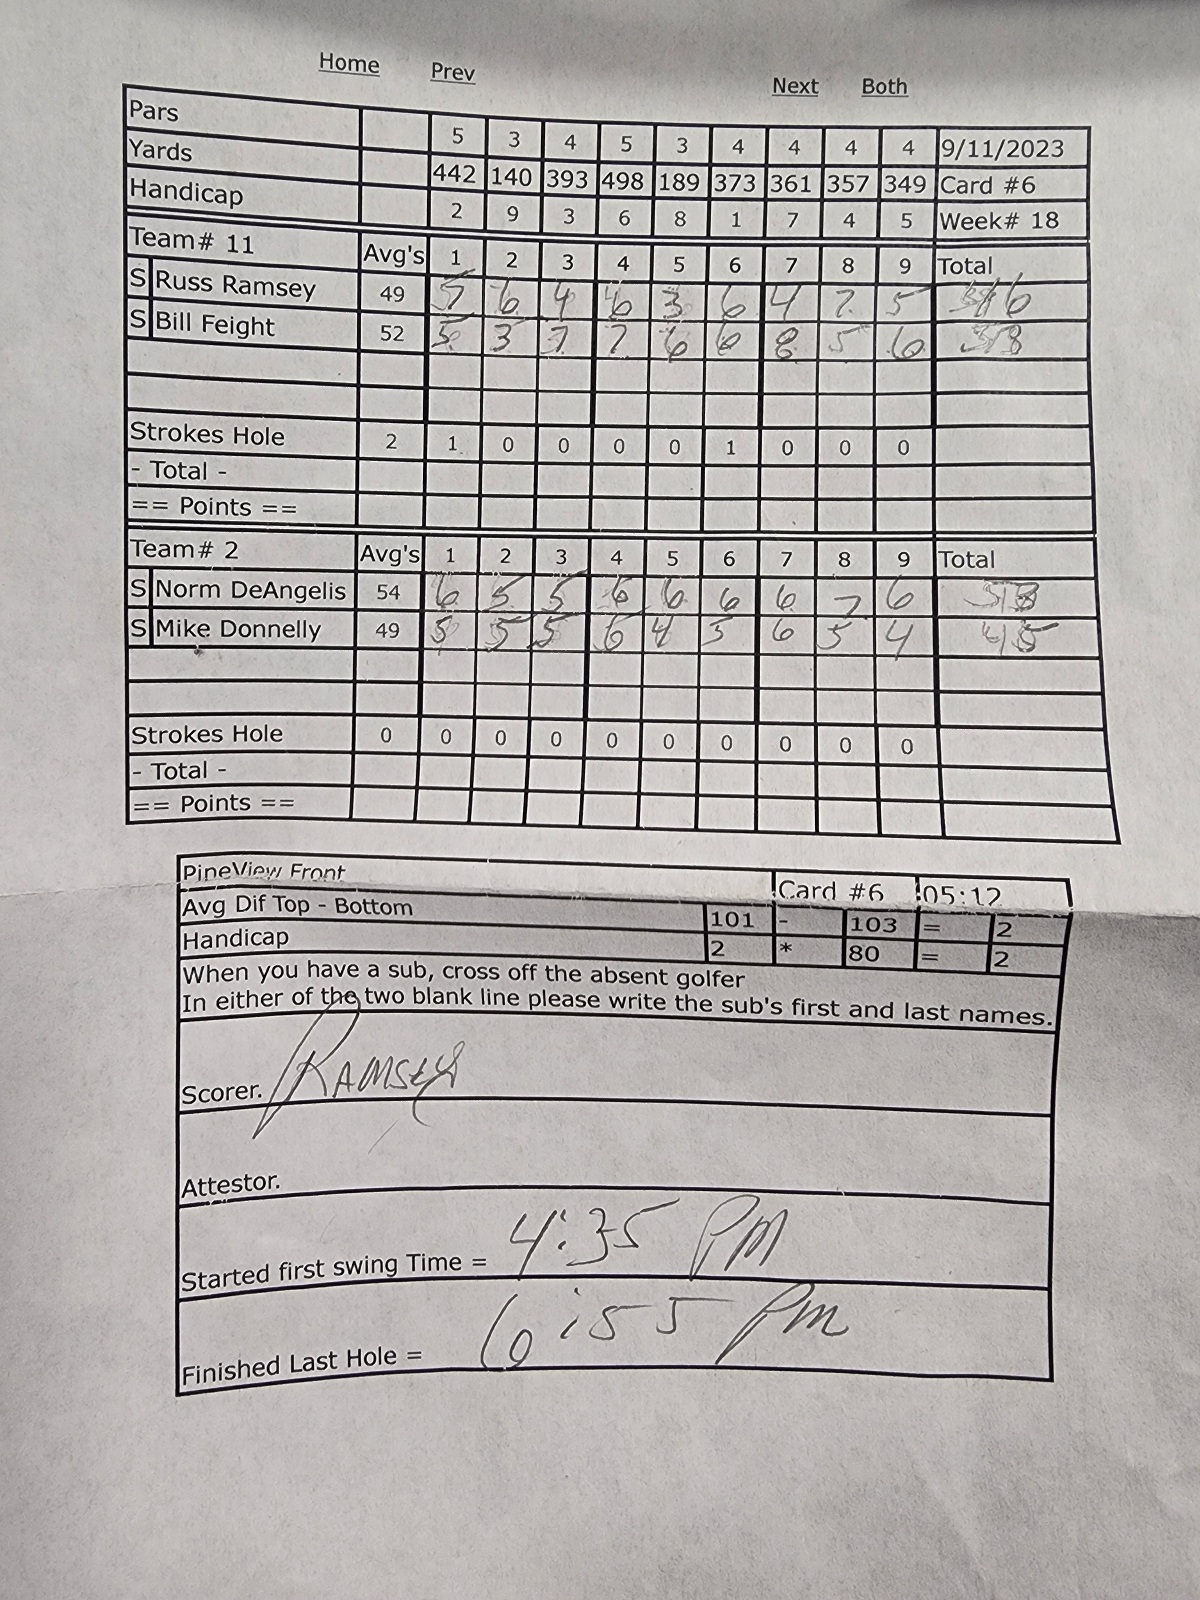 Home Prev Next Both
Pars 5 3 4 5 3 4 4 4 4 9/11/2023
Yards 442 140 393 498 189 373 361 357 349 Card #6
Handicap 2 9 3 6 8 1 7 4 5 Week# 18
Team# 11 Avg's 1 2 3 4 5 6 7 8 9 Total
S Russ Ramsey 49 6 4 6 3 6 4 7 5
S Bill Feight 52 5 3 7 7 6 6 8 5 6 53
Strokes Hole 2 1 0 0 0 0 1 0 0 0
- Total -
== Points ==
Team# 2 Avg's 1 2 3 4 5 6 7 8 9 Total
S Norm DeAngelis 54 6 5 5 6 6 6 6 7 6 53
S Mike Donnelly 49 5 5 5 6 4 5 6 5 4 45
Strokes Hole 0 0 0 0 0 0 0 0 0 0
- Total -
== Points ==
PineView Front Card #6 05:12
Avg Dif Top - Bottom 101 - 103 = 2
Handicap 2 * 80 = 2
When you have a sub, cross off the absent golfer
In either of the two blank line please write the sub's first and last names.
Scorer. Ramsey
Attestor.
Started first swing Time = 4:35 PM
Finished Last Hole = 6:55 PM